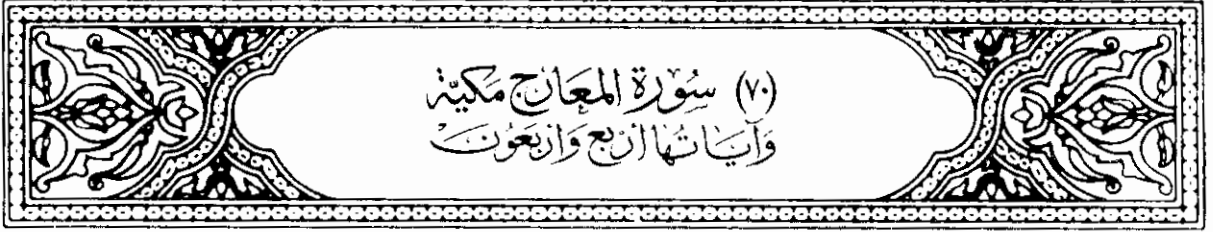 (٧٠) سُورَة المَعَارِج مَكيَّة
وَآيَاتُهَا أَرْبَع وَأَرْبَعُونَ